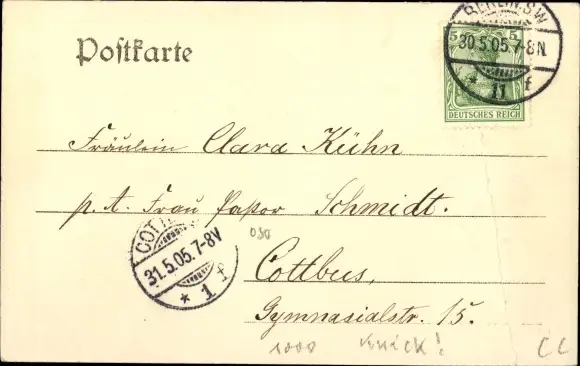 Postkarte
BERLIN.S.W.
30.5.05.7-8N.
* 11 f
5 5
DEUTSCHES REICH
Fräulein Clara Kühn
p. A. Frau Pastor Schmidt.
COTT
31.5.05.7-8V
* 1 f
080
Cottbus,
Gymnasialstr. 15.
1000 Knick! CC